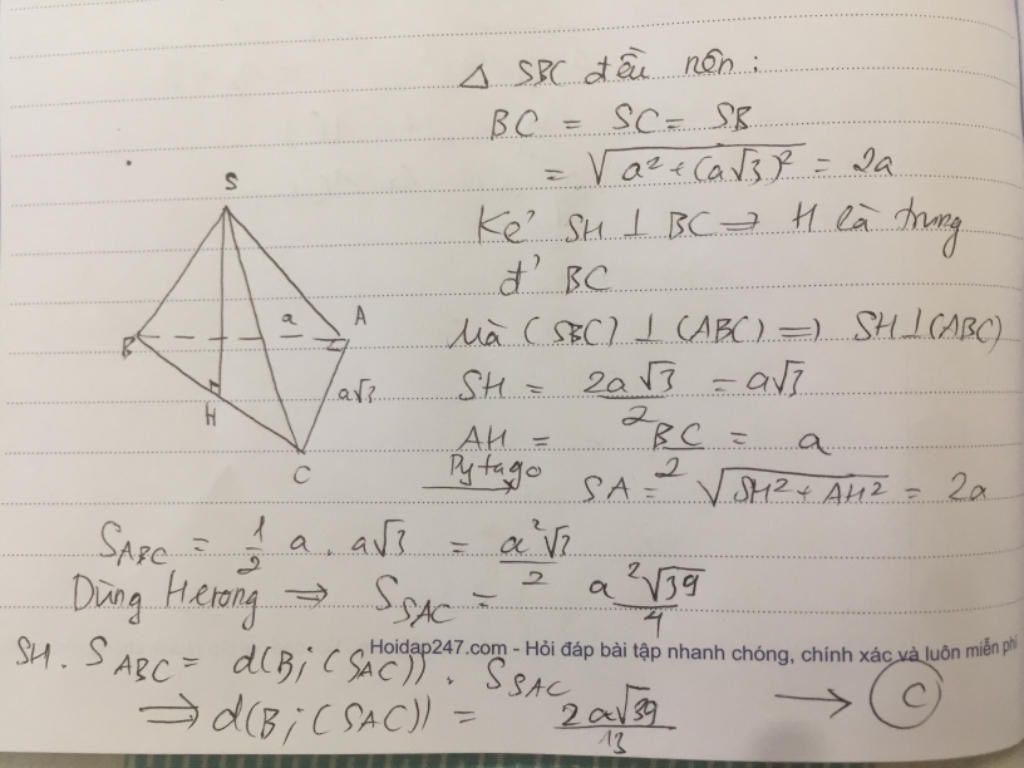 Δ SBC đều nên:
BC = SC = SB
= √(a² + (a√3)²) = 2a
Kẻ SH ⊥ BC ⇒ H là trung
đ' BC
Mà (SBC) ⊥ (ABC) ⇒ SH ⊥ (ABC)
SH = 2a√3/2 = a√3
AH = BC/2 = a
Pytago → SA = √(SH² + AH²) = 2a
S
B
a
A
H
a√3
C
S_ABC = 1/2 a . a√3 = a²√3/2
Dùng Herong ⇒ S_SAC = a²√39/4
Hoidap247.com - Hỏi đáp bài tập nhanh chóng, chính xác và luôn miễn phí
SH . S_ABC = d(B; (SAC)) . S_SAC
⇒ d(B; (SAC)) = 2a√39/13 → C